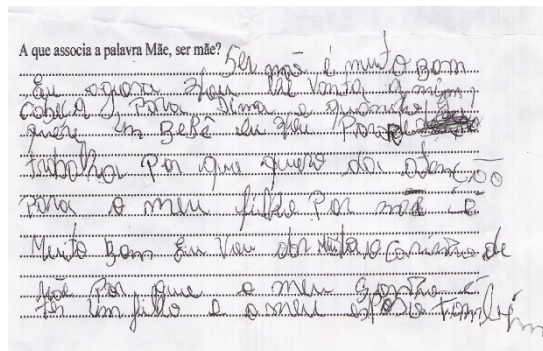 A que associa a palavra Mãe, ser mãe? Ser mãe é muito Bom
Eu agora vou levanta a minha
cabeça Para Sima e quando eu
quere um Bebê eu vou Para
trabalha Por que quero da aten ção
Para o meu filho Por mãe é
Muito Bom Eu Vou dar Muito carinho de
Mãe Por que o meu Sonho é
ter um filho e o meu esposo também